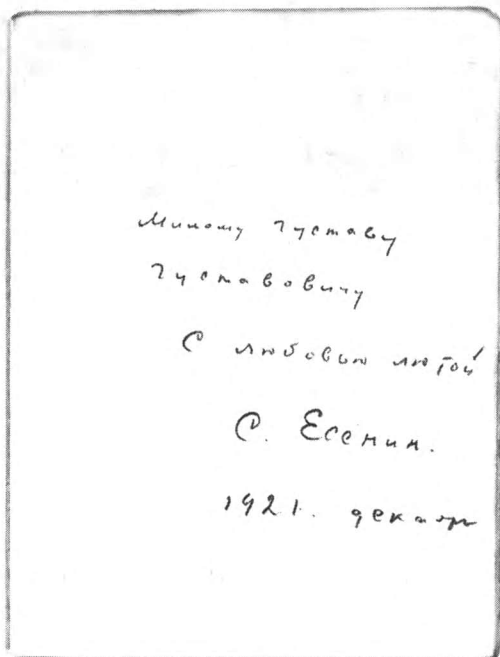 Милому Густаву
Густавовичу
С любовью лютой
С. Есенин.
1921. декабрь